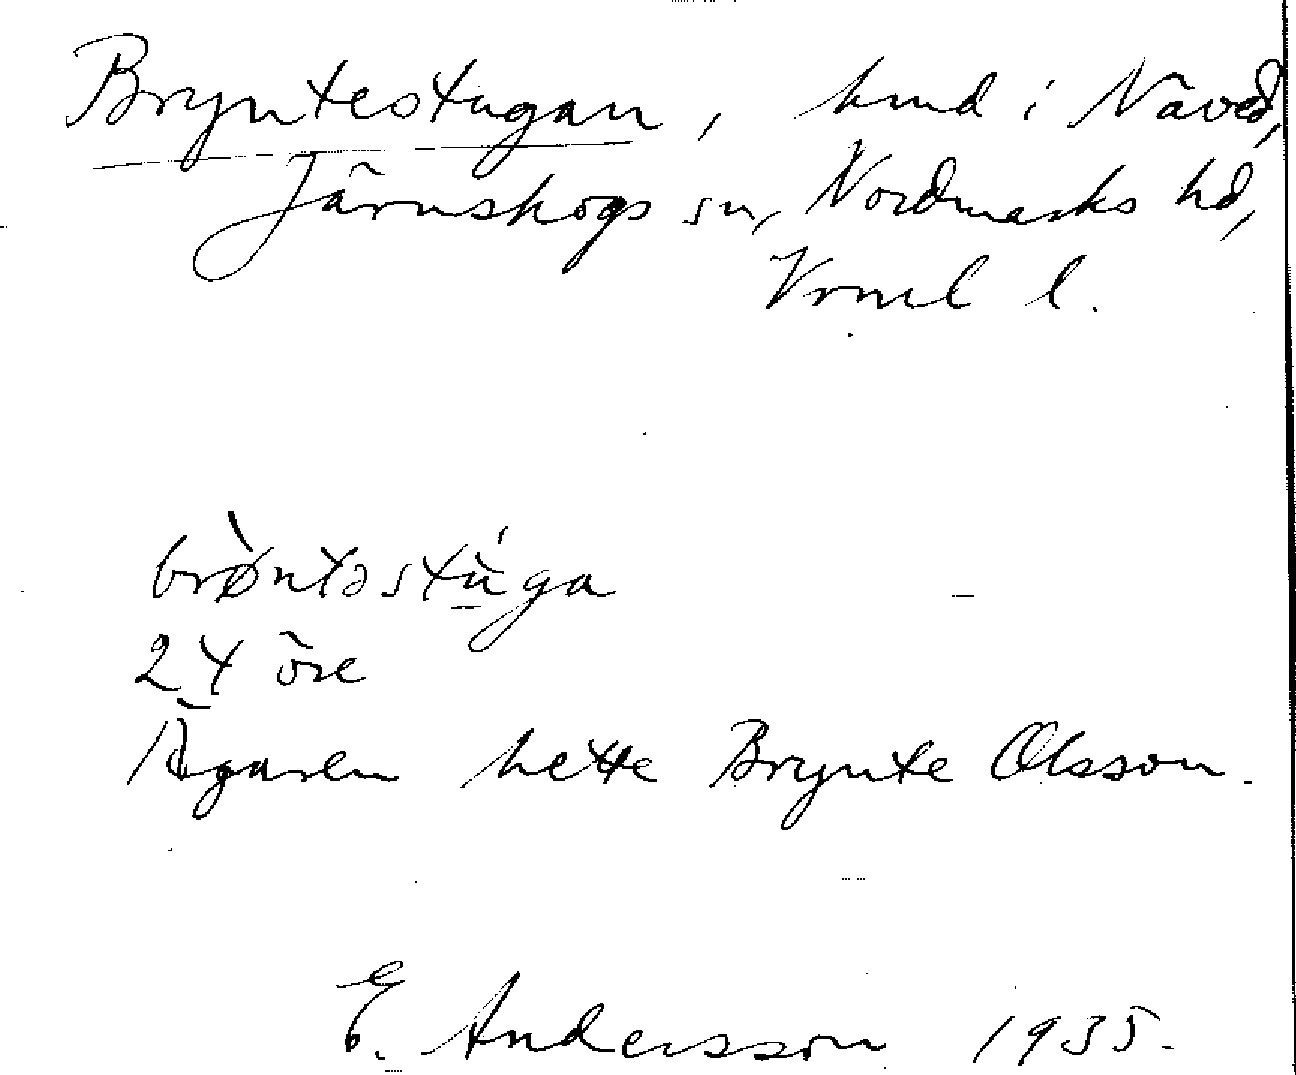 Bryntestugan, hmd i Näved,
Järnskogs sn, Nordmarks hd,
Vrml l.
brø̀ntəstù́ga
24 öre
Ägaren hette Brynte Olsson.
E. Andersson 1935.